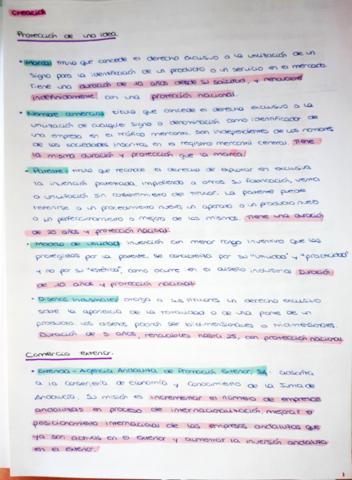 Creación
Protección de una idea.
• Marca: título que concede el derecho exclusivo a la utilización de un
signo para la identificación de un producto o un servicio en el mercado.
Tiene una duración de 10 años desde su solicitud, y renovable
indefinidamente con una protección nacional.
• Nombre comercial: título que concede el derecho exclusivo a la
utilización de cualquier signo o denominación como identificador de
una empresa en el tráfico mercantil. Son independientes de los nombres
de las sociedades inscritas en el registro mercantil central. Tiene
la misma duración y protección que la marca.
• Patente: título que reconoce el derecho de explotar en exclusiva
la invención patentada, impidiendo a otros su fabricación, venta
o utilización sin consentimiento del titular. La patente puede
referirse a un procedimiento nuevo, un aparato o un producto nuevo
o un perfeccionamiento o mejora de los mismos. Tiene una duración
de 20 años y protección nacional.
• Modelo de utilidad: invención con menor rango inventivo que las
protegidas por la patente. Se caracteriza por su "utilidad" y "practicidad"
y no por su "estética", como ocurre en el diseño industrial. Duración
de 10 años y protección nacional.
• Diseños industriales: otorga a sus titulares un derecho exclusivo
sobre la apariencia de la totalidad o de una parte de un
producto. Los diseños podrán ser bidimensionales o tridimensionales.
Duración de 5 años, renovables hasta 25, con protección nacional.
Comercio exterior.
• Extenda - Agencia Andaluza de Promoción Exterior, SA: adscrita
a la consejería de economía y conocimiento de la Junta de
Andalucía. Su misión es incrementar el número de empresas
andaluzas en proceso de internacionalización, mejorar el
posicionamiento internacional de las empresas andaluzas que
ya son activas en el exterior y aumentar la inversión andaluza
en el exterior.
1